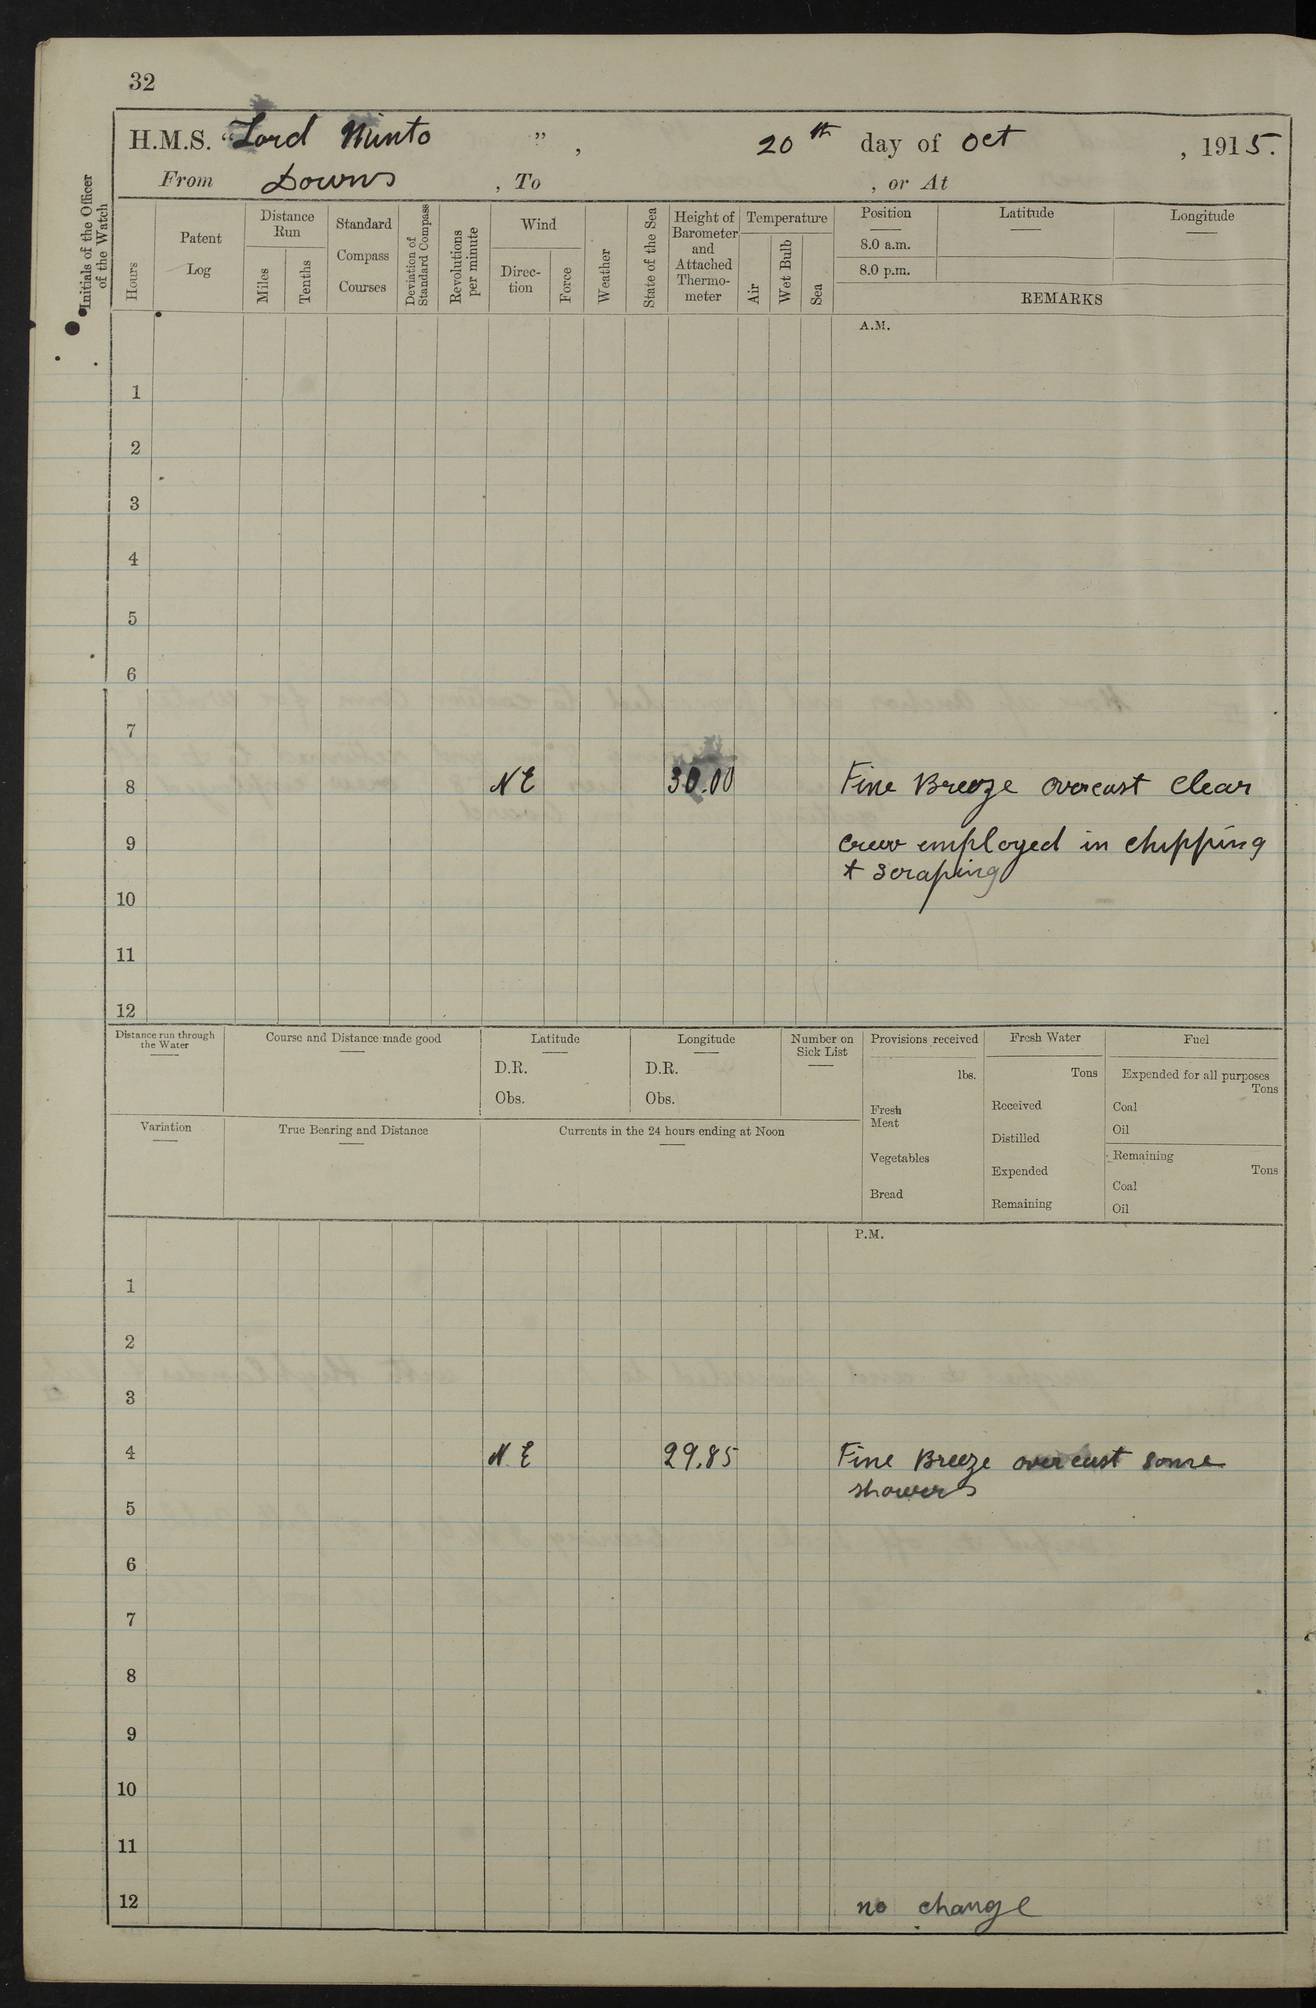 32
H.M.S. "Lord Minto ", 20th day of Oct , 1915.
From Downs , To , or At
Initials of the Officer of the Watch
Hours
Patent Log
Distance Run
Miles
Tenths
Standard Compass Courses
Deviation of Standard Compass
Revolutions per minute
Wind
Direc-tion
Force
Weather
State of the Sea
Height of Barometer and Attached Thermo-meter
Temperature
Air
Wet Bulb
Sea
Position Latitude Longitude
8.0 a.m.
8.0 p.m.
REMARKS
A.M.
1
2
3
4
5
6
7
8 N E 30.00 Fine Breeze overcast clear
9 crew employed in chipping
+ scraping
10
11
12
Distance run through the Water
Course and Distance made good
Latitude
D.R.
Obs.
Longitude
D.R.
Obs.
Number on Sick List
Variation
True Bearing and Distance
Currents in the 24 hours ending at Noon
Provisions received
lbs.
Fresh Meat
Vegetables
Bread
Fresh Water
Tons
Received
Distilled
Expended
Remaining
Fuel
Expended for all purposes
Tons
Coal
Oil
Remaining
Tons
Coal
Oil
P.M.
1
2
3
4 N.E 29.85 Fine Breeze overcast some
showers
5
6
7
8
9
10
11
12 no change